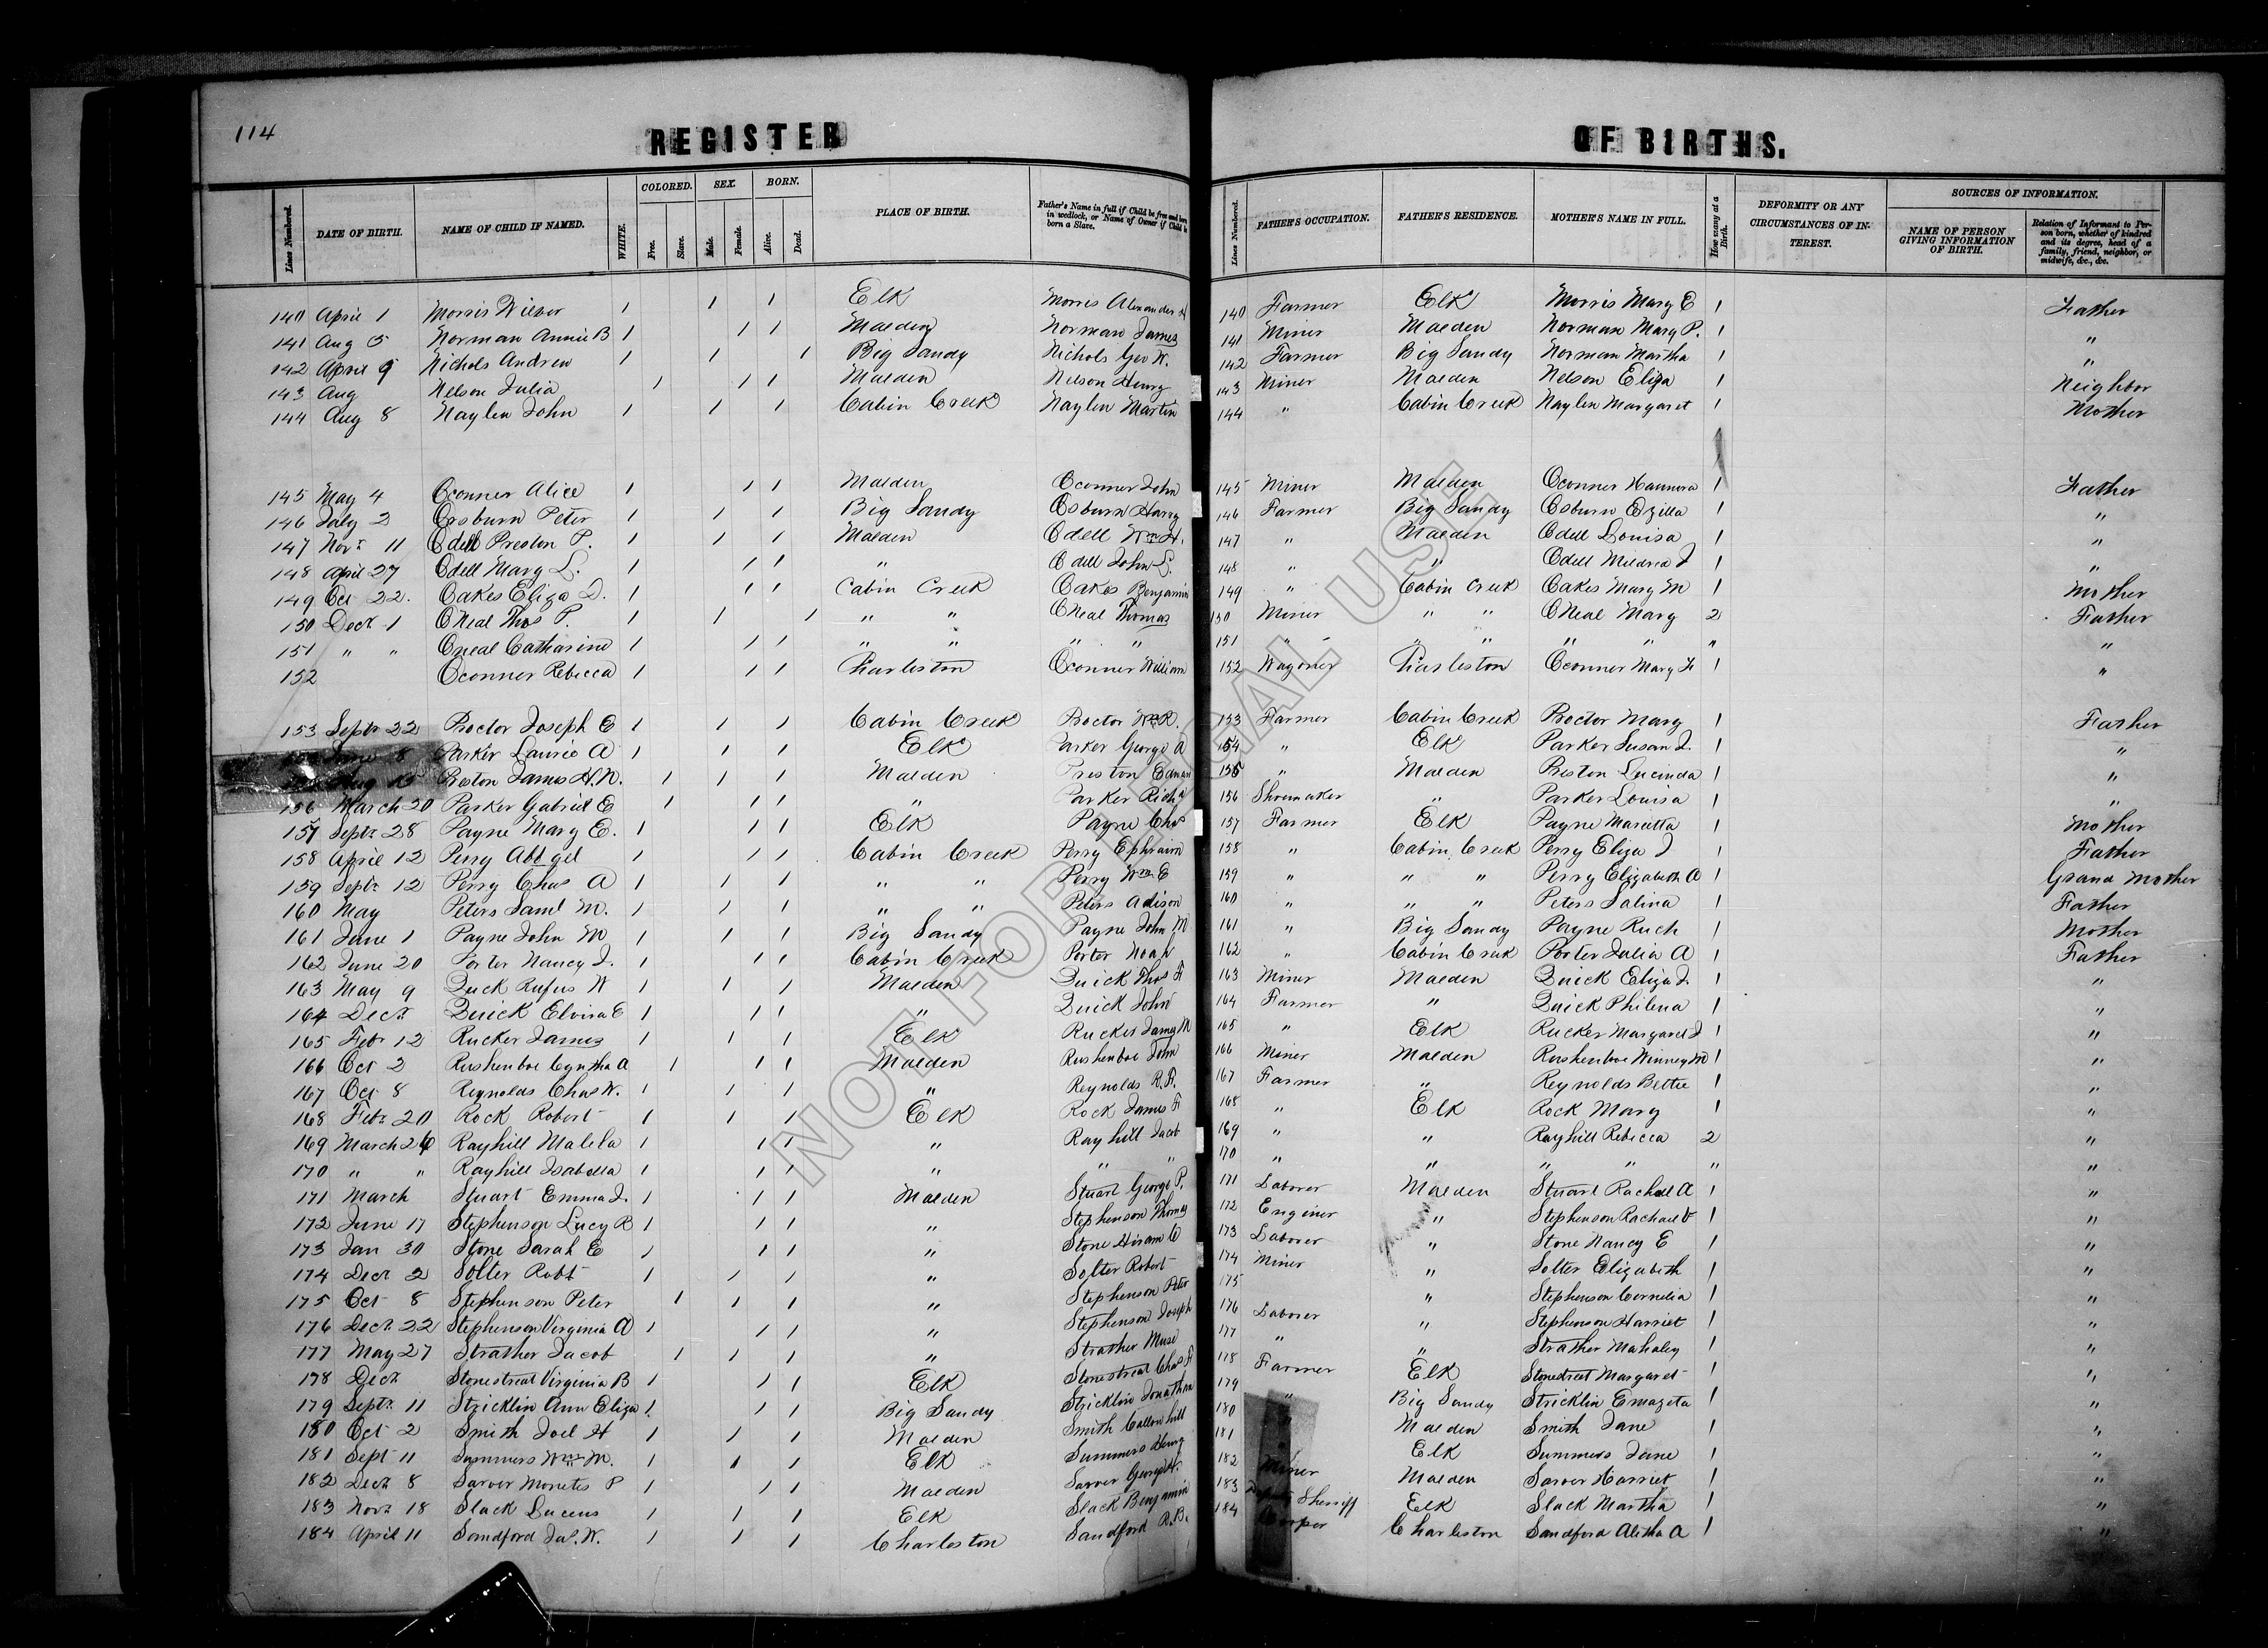 114
REGISTER OF BIRTHS.
Lines Numbered. DATE OF BIRTH. NAME OF CHILD IF NAMED. WHITE. COLORED. Free. Slave. SEX. Male. Female. BORN. Alive. Dead. PLACE OF BIRTH. Father's Name in full if Child be free and born in wedlock, or Name of Owner if Child be born a Slave. Lines Numbered. FATHER'S OCCUPATION. FATHER'S RESIDENCE. MOTHER'S NAME IN FULL. How many at a Birth. DEFORMITY OR ANY CIRCUMSTANCES OF INTEREST. SOURCES OF INFORMATION. NAME OF PERSON GIVING INFORMATION OF BIRTH. Relation of Informant to Person born, whether of kindred and its degree, head of a family, friend, neighbor, or midwife, &c., &c.
140 April 1 Morris Wilber 1 1 1 Elk Morris Alexander H 140 Farmer Elk Morris Mary E 1 Father
141 Aug 5 Norman Annie B 1 1 1 Malden Norman James 141 Miner Malden Norman Mary P. 1 "
142 April 9 Nichols Andrew 1 1 1 Big Sandy Nichols Geo W. 142 Farmer Big Sandy Norman Martha 1 "
143 Aug Nelson Julia 1 1 1 Malden Nelson Henry 143 Miner Malden Nelson Eliza 1 Neighbor
144 Aug 8 Naylen John 1 1 1 Cabin Creek Naylen Martin 144 " Cabin Creek Naylen Margaret 1 Mother
145 May 4 Oconner Alice 1 1 1 Malden Oconner John 145 Miner Malden Oconner Hannora 1 Father
146 July 2 Osburn Peter 1 1 1 Big Sandy Osburn Harry 146 Farmer Big Sandy Osburn Ozilla 1 "
147 Novr 11 Odell Preston P. 1 1 1 Malden Odell Wm H. 147 " Malden Odell Louisa 1 "
148 April 27 Odell Mary L. 1 1 1 " Odell John L. 148 " " Odell Mildred J 1 "
149 Oct 22. Oakes Eliza D. 1 1 1 Cabin Creek Oakes Benjamin 149 " Cabin Creek Oakes Mary M 1 Mother
150 Decr 1 ONeal Thos P. 1 1 1 " " ONeal Thomas 150 Miner " " ONeal Mary 2 Father
151 " " Oneal Catharine 1 1 1 " " " " 151 " " " " " " "
152 Oconner Rebecca 1 1 1 Charleston Oconner William 152 Wagoner Charleston Oconner Mary F 1 "
153 Septr 22 Proctor Joseph E 1 1 1 Cabin Creek Proctor Wm R. 153 Farmer Cabin Creek Proctor Mary 1 Father
June 8 Parker Laurie A 1 1 1 Elk Parker George A 154 " Elk Parker Susan J. 1 "
Aug 15 Preston James H.N. 1 1 1 Malden Preston Edman 155 " Malden Preston Lucinda 1 "
156 March 20 Parker Gabriel E 1 1 1 " Parker Richd 156 Shoemaker " Parker Louisa 1 "
157 Septr 28 Payne Mary E. 1 1 1 Elk Payne Chas 157 Farmer Elk Payne Marietta 1 Mother
158 April 12 Perry Abbgel 1 1 1 Cabin Creek Perry Ephraim 158 " Cabin Creek Perry Eliza J 1 Father
159 Septr 12 Perry Chas A 1 1 1 " " Perry Wm E 159 " " " Perry Elizabeth A 1 Grand Mother
160 May Peters Saml M. 1 1 1 " " Peters Adison 160 " " " Peters Salina 1 Father
161 June 1 Payne John M 1 1 1 Big Sandy Payne John M 161 " Big Sandy Payne Ruch 1 Mother
162 June 20 Porter Nancy J. 1 1 1 Cabin Creek Porter Noah 162 " Cabin Creek Porter Julia A 1 Father
163 May 9 Quck Rufus W 1 1 1 Malden Quick Thos F 163 Miner Malden Quick Eliza J. 1 "
164 Decr Quick Elvira E 1 1 1 " Quick John 164 Farmer " Quick Philena 1 "
165 Febr 12 Rucker James 1 1 1 Elk Rucker James M 165 " Elk Rucker Margaret J 1 "
166 Oct 2 Rushenboe Cyntha A 1 1 1 Malden Rushenboe John 166 Miner Malden Rushenboe Winney M 1 "
167 Oct 8 Reynolds Chas W. 1 1 1 " Reynolds R.F. 167 Farmer " Reynolds Bettie 1 "
168 Febr 20 Rock Robert 1 1 1 Elk Rock James F 168 " Elk Rock Mary 1 "
169 March 26 Rayhill Malela 1 1 1 " Rayhill Jacob 169 " " Rayhill Rebecca 2 "
170 " " Rayhill Isabella 1 1 1 " " " 170 " " " " " "
171 March Stuart Emma J. 1 1 1 Malden Stuart George P. 171 Laborer Malden Stuart Rachael A 1 "
172 June 17 Stephenson Lucy R 1 1 1 " Stephenson Thomas 172 Enginer " Stephenson Rachael V 1 "
173 Jan 30 Stone Sarah E 1 1 1 " Stone Hiram C 173 Laborer " Stone Nancy E 1 "
174 Decr 2 Solter Robt 1 1 1 " Solter Robert 174 Miner " Solter Elizabeth 1 "
175 Oct 8 Stephenson Peter 1 1 1 " Stephenson Peter 175 " Stephenson Cornelia 1 "
176 Decr 22 Stephenson Virginia A 1 1 1 " Stephenson Joseph 176 Laborer " Stephenson Harriet 1 "
177 May 27 Strather Jacob 1 1 1 " Strather Muse 177 " " Strather Mahaley 1 "
178 Decr Stonestreat Virginia B 1 1 1 Elk Stonestreat Chas F 178 Farmer Elk Stonestreet Margaret 1 "
179 Septr 11 Stricklin Ann Eliza 1 1 1 Big Sandy Stricklin Jonathan 179 " Big Sandy Stricklin Emazeta 1 "
180 Oct 2 Smith Joel H 1 1 1 Malden Smith Callowhill 180 Malden Smith Jane 1 "
181 Sept 11 Summers Wm M. 1 1 1 Elk Summers Henry 181 Elk Summers Jane 1 "
182 Decr 8 Sarver Monetes P 1 1 1 Malden Sarver George H. 182 Miner Malden Sarver Harriet 1 "
183 Novr 18 Slack Lucens 1 1 1 Elk Slack Benjamin 183 Deputy Sherriff Elk Slack Martha 1 "
184 April 11 Sandford Jas. W. 1 1 1 Charleston Sandford R.B. 184 Charleston Sandford Alitha A 1 "
NOT FOR LEGAL USE